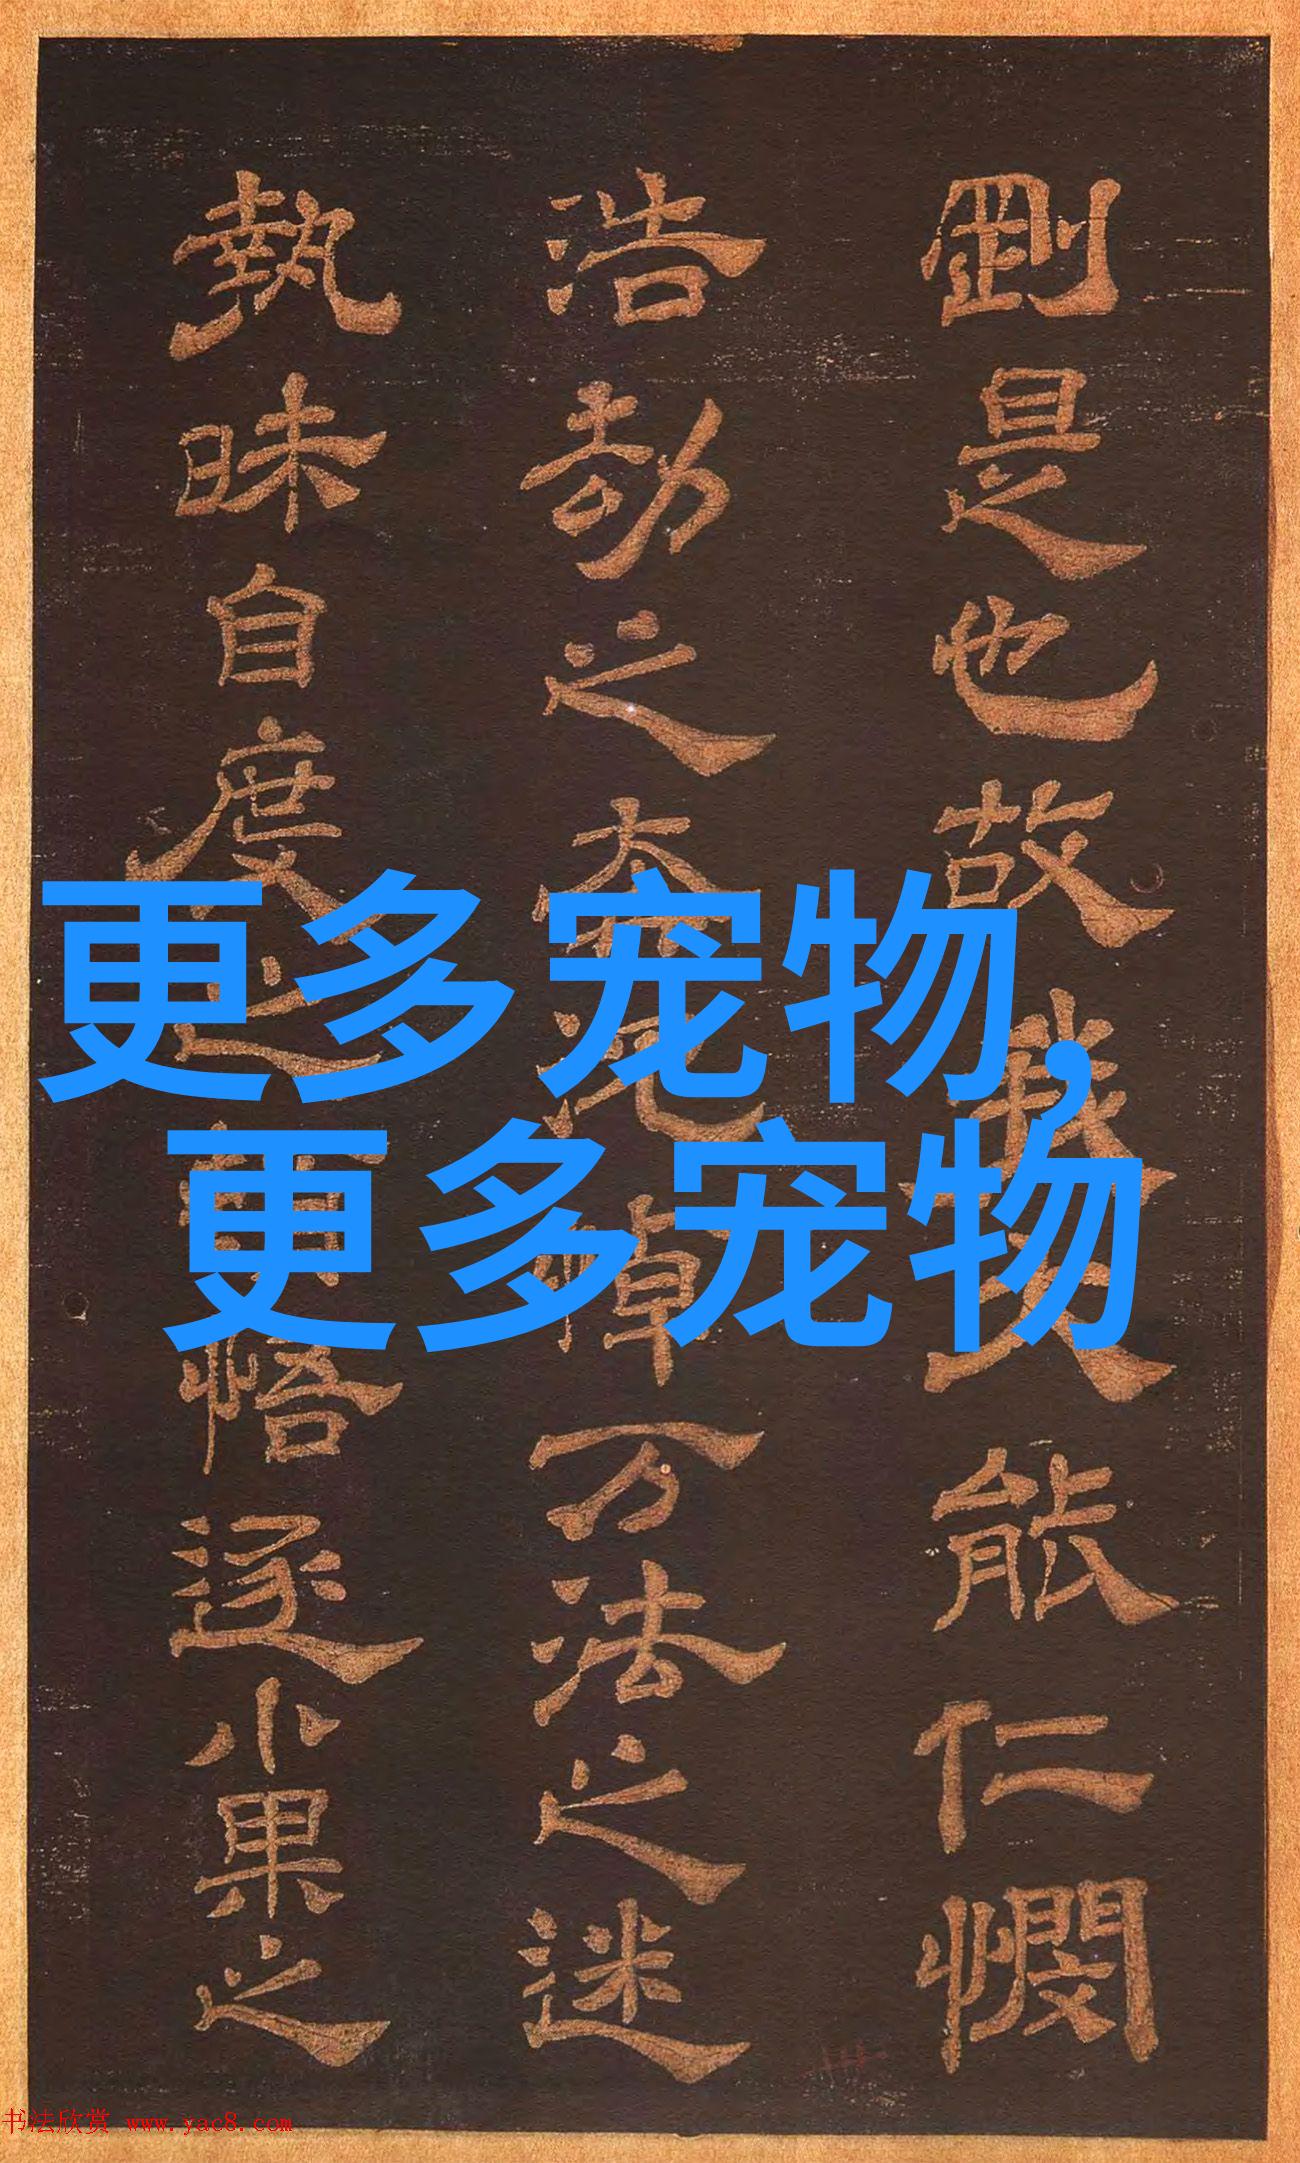 剛是也故我大能仁憫
浩劫之
万法之迷
執昧自度之
悟逐小果之
更多宠物,
更多宠物
书法欣赏 www.yac8.com